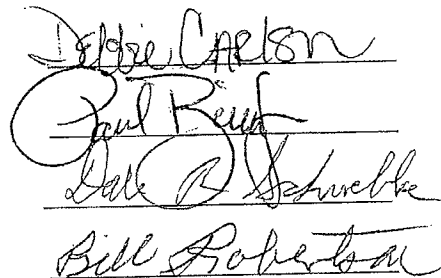 Debbie Carlson
Paul
Dale B Schwebke
Bill Robertson